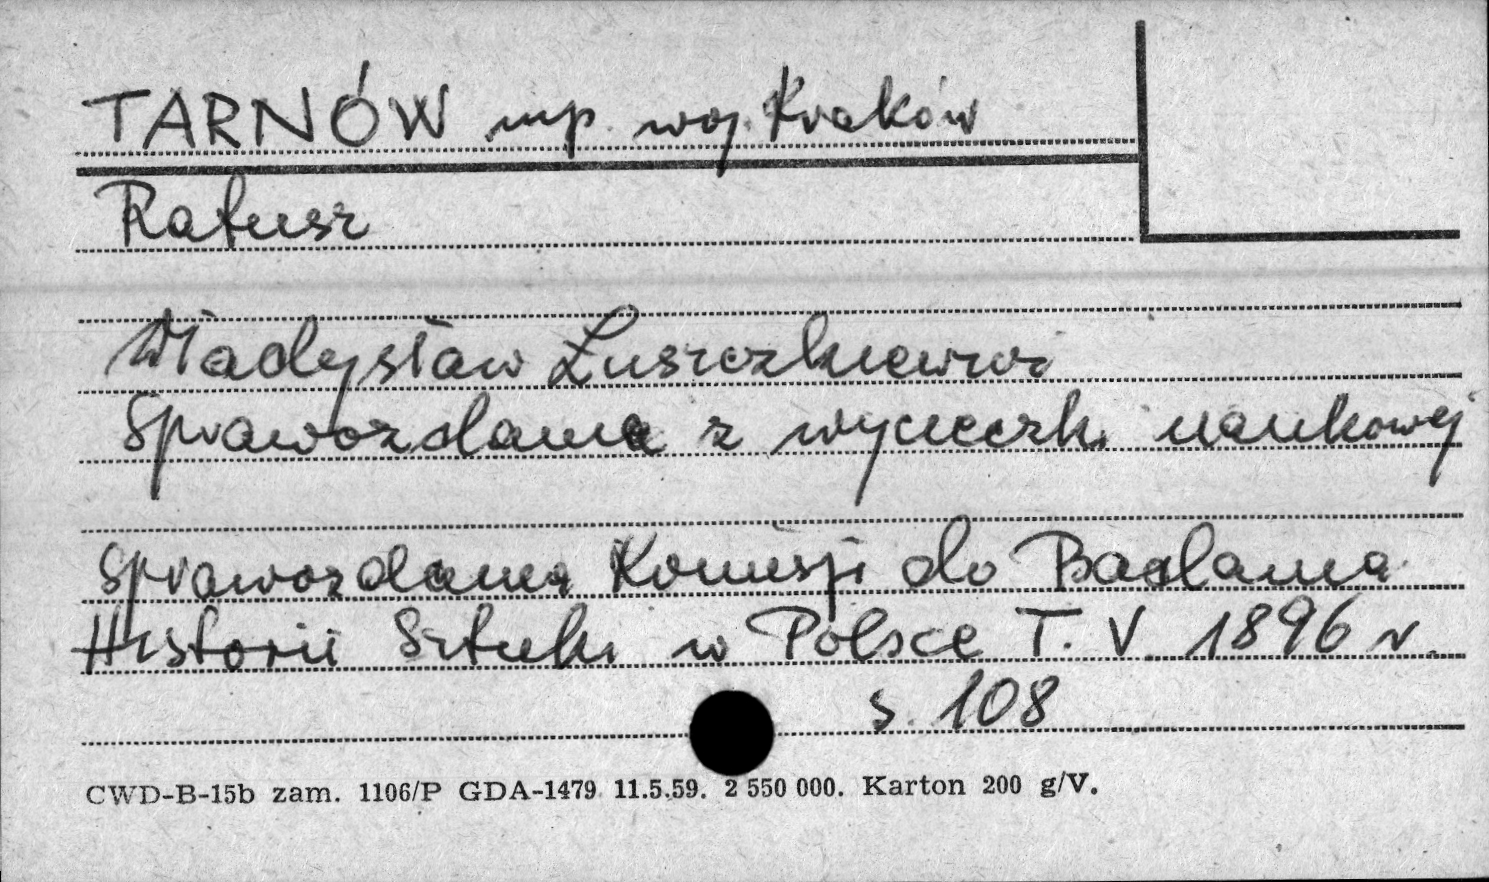 TARNÓW mp. woj. Kraków
Ratusz
Władysław Łuszczkiewicz
Sprawozdanie z wycieczki naukowej
Sprawozdania Komisji do Badania
Historii Sztuki w Polsce T. V. 1896 r.
s. 108
CWD-B-15b zam. 1106/P GDA-1479 11.5.59. 2 550 000. Karton 200 g/V.